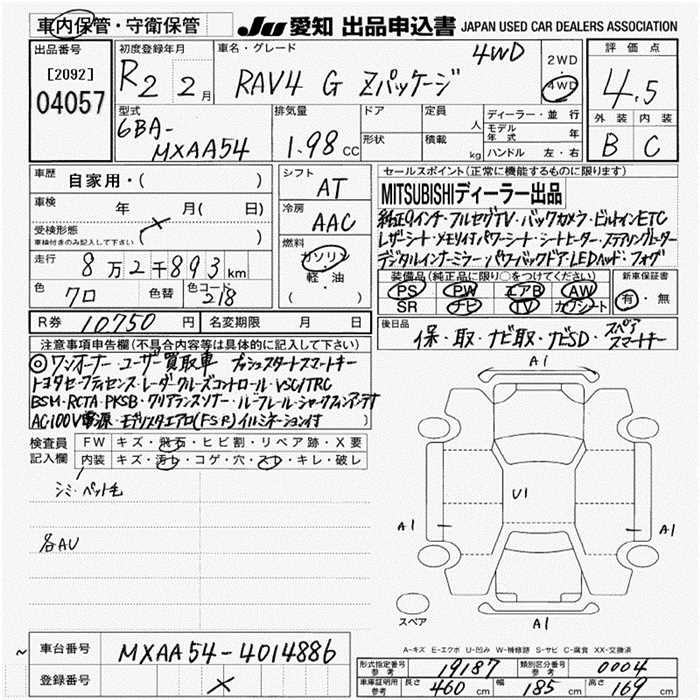 車内保管・守衛保管
JU 愛知 出品申込書 JAPAN USED CAR DEALERS ASSOCIATION
出品番号
[2092]
04057
初度登録年月
R2 2月
車名・グレード
RAV4 G Zパッケージ 4WD
2WD
4WD
評価点
4.5
外装 内装
B C
型式
6BA-
MXAA54
排気量
1.98 CC
ドア
形状
定員 人
積載 kg
ディーラー・並行
モデル年式 年
ハンドル 左・右
車歴
自家用・( )
車検 年 月( 日)
受検形態
車検付きのみ記入して下さい
走行
8万2千893km
色
クロ
色替
色コード
218
シフト
AT
冷房
AAC
燃料
ガソリン
軽・油
( )
セールスポイント(正常に機能するものに限ります)
MITSUBISHIディーラー出品
純正9インチ・フルセグTV・バックカメラ・ビルトインETC
レザーシート・メモリ付パワーシート・シートヒーター・ステアリングヒーター
デジタルインナーミラー・パワーバックドア・LEDヘッド・フォグ
装備品(純正品に限り○をつけてください)
PS PW エアB AW
SR ナビ TV カワシート
新車保証書
有・無
R券 10750円
名変期限 月 日
後日品
保・取・ナビ取・ナビSD・スペア
スマートキー
注意事項申告欄(不具合内容等は具体的に記入して下さい)
◎ワンオーナー・ユーザー買取車 プッシュスタートスマートキー
トヨタセーフティセンス・レーダークルーズコントロール・VSC/TRC
BSM・RCTA・PKSB・クリアランスソナー・ルーフレール・シャークフィンアンテナ
AC100V電源・モデリスタエアロ(F・S・R)イルミネーション付
検査員記入欄
FW キズ・飛石・ヒビ割・リペア跡・X要
内装 キズ・汚レ・コゲ・穴・スレ・キレ・破レ
シミ・ペット毛
各AU
A1
U1
A1
A1
A1
スペア
A-キズ E-エクボ U-凹み W-補修跡 S-サビ C-腐食 XX-交換済
車台番号
MXAA54-4014886
登録番号
形式指定番号
参考
19187
類別区分番号
参考
0004
車庫証明用
参考
長さ 460 cm
幅 185 cm
高さ 169 cm